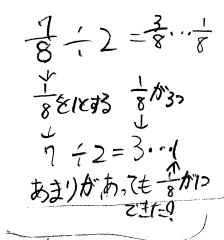 7/8 ÷ 2 = 3/8 … 1/8
↓ ↓
1/8を1とする 1/8が3つ
↓ ↓
7 ÷ 2 = 3 … 1
あまりがあっても 1/8が1つ
できた!?